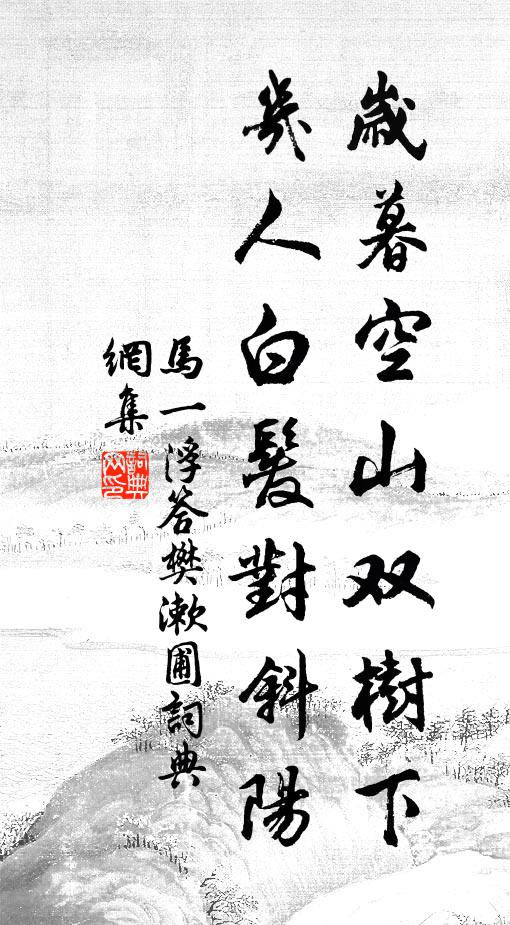 歲暮空山双樹下
幾人白髮對斜陽
馬一浮答樊漱圃詞典
網集
詞典
网印